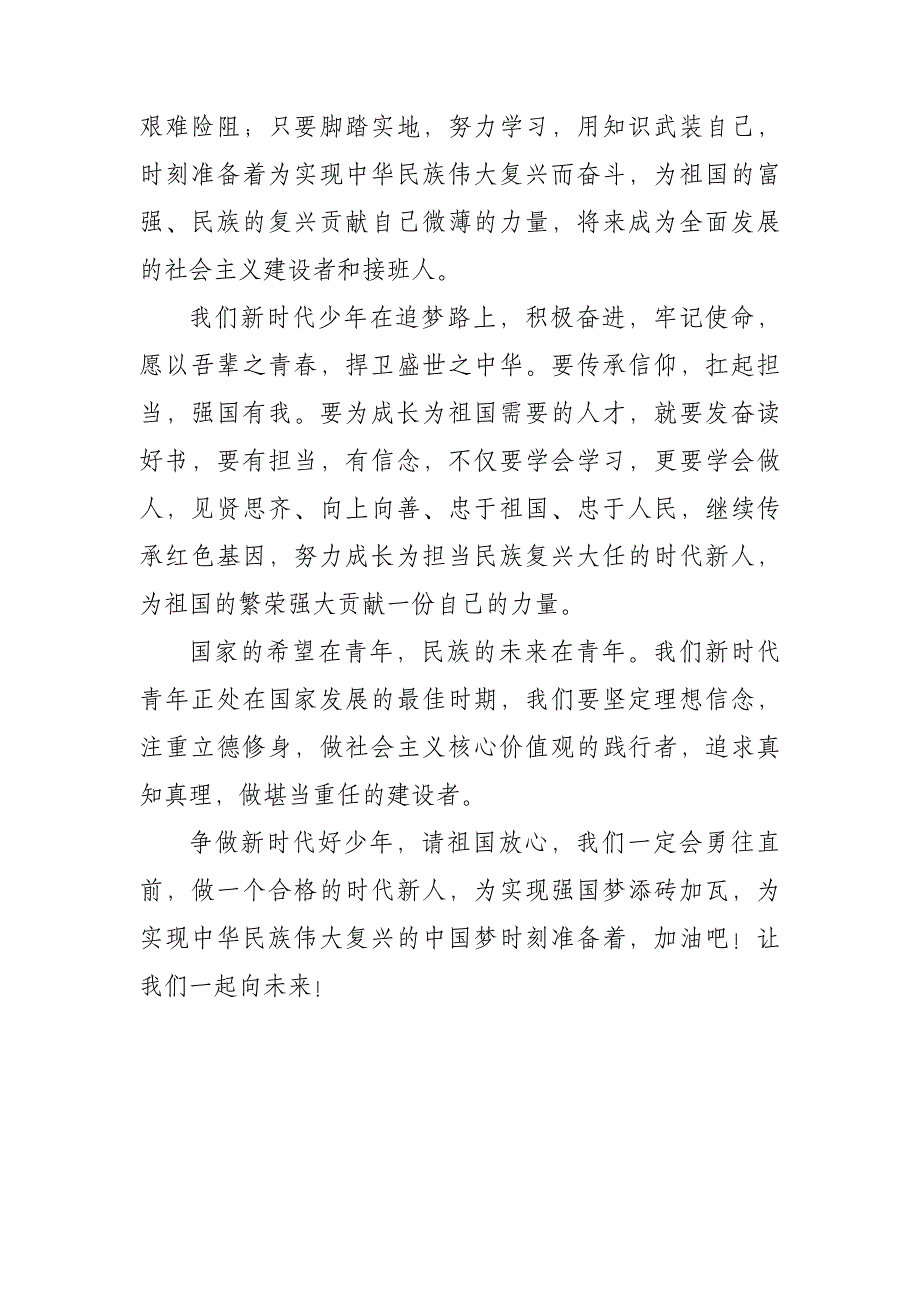 艰难险阻；只要脚踏实地，努力学习，用知识武装自己，
时刻准备着为实现中华民族伟大复兴而奋斗，为祖国的富
强、民族的复兴贡献自己微薄的力量，将来成为全面发展
的社会主义建设者和接班人。
我们新时代少年在追梦路上，积极奋进，牢记使命，
愿以吾辈之青春，捍卫盛世之中华。要传承信仰，扛起担
当，强国有我。要为成长为祖国需要的人才，就要发奋读
好书，要有担当，有信念，不仅要学会学习，更要学会做
人，见贤思齐、向上向善、忠于祖国、忠于人民，继续传
承红色基因，努力成长为担当民族复兴大任的时代新人，
为祖国的繁荣强大贡献一份自己的力量。
国家的希望在青年，民族的未来在青年。我们新时代
青年正处在国家发展的最佳时期，我们要坚定理想信念，
注重立德修身，做社会主义核心价值观的践行者，追求真
知真理，做堪当重任的建设者。
争做新时代好少年，请祖国放心，我们一定会勇往直
前，做一个合格的时代新人，为实现强国梦添砖加瓦，为
实现中华民族伟大复兴的中国梦时刻准备着，加油吧！让
我们一起向未来！